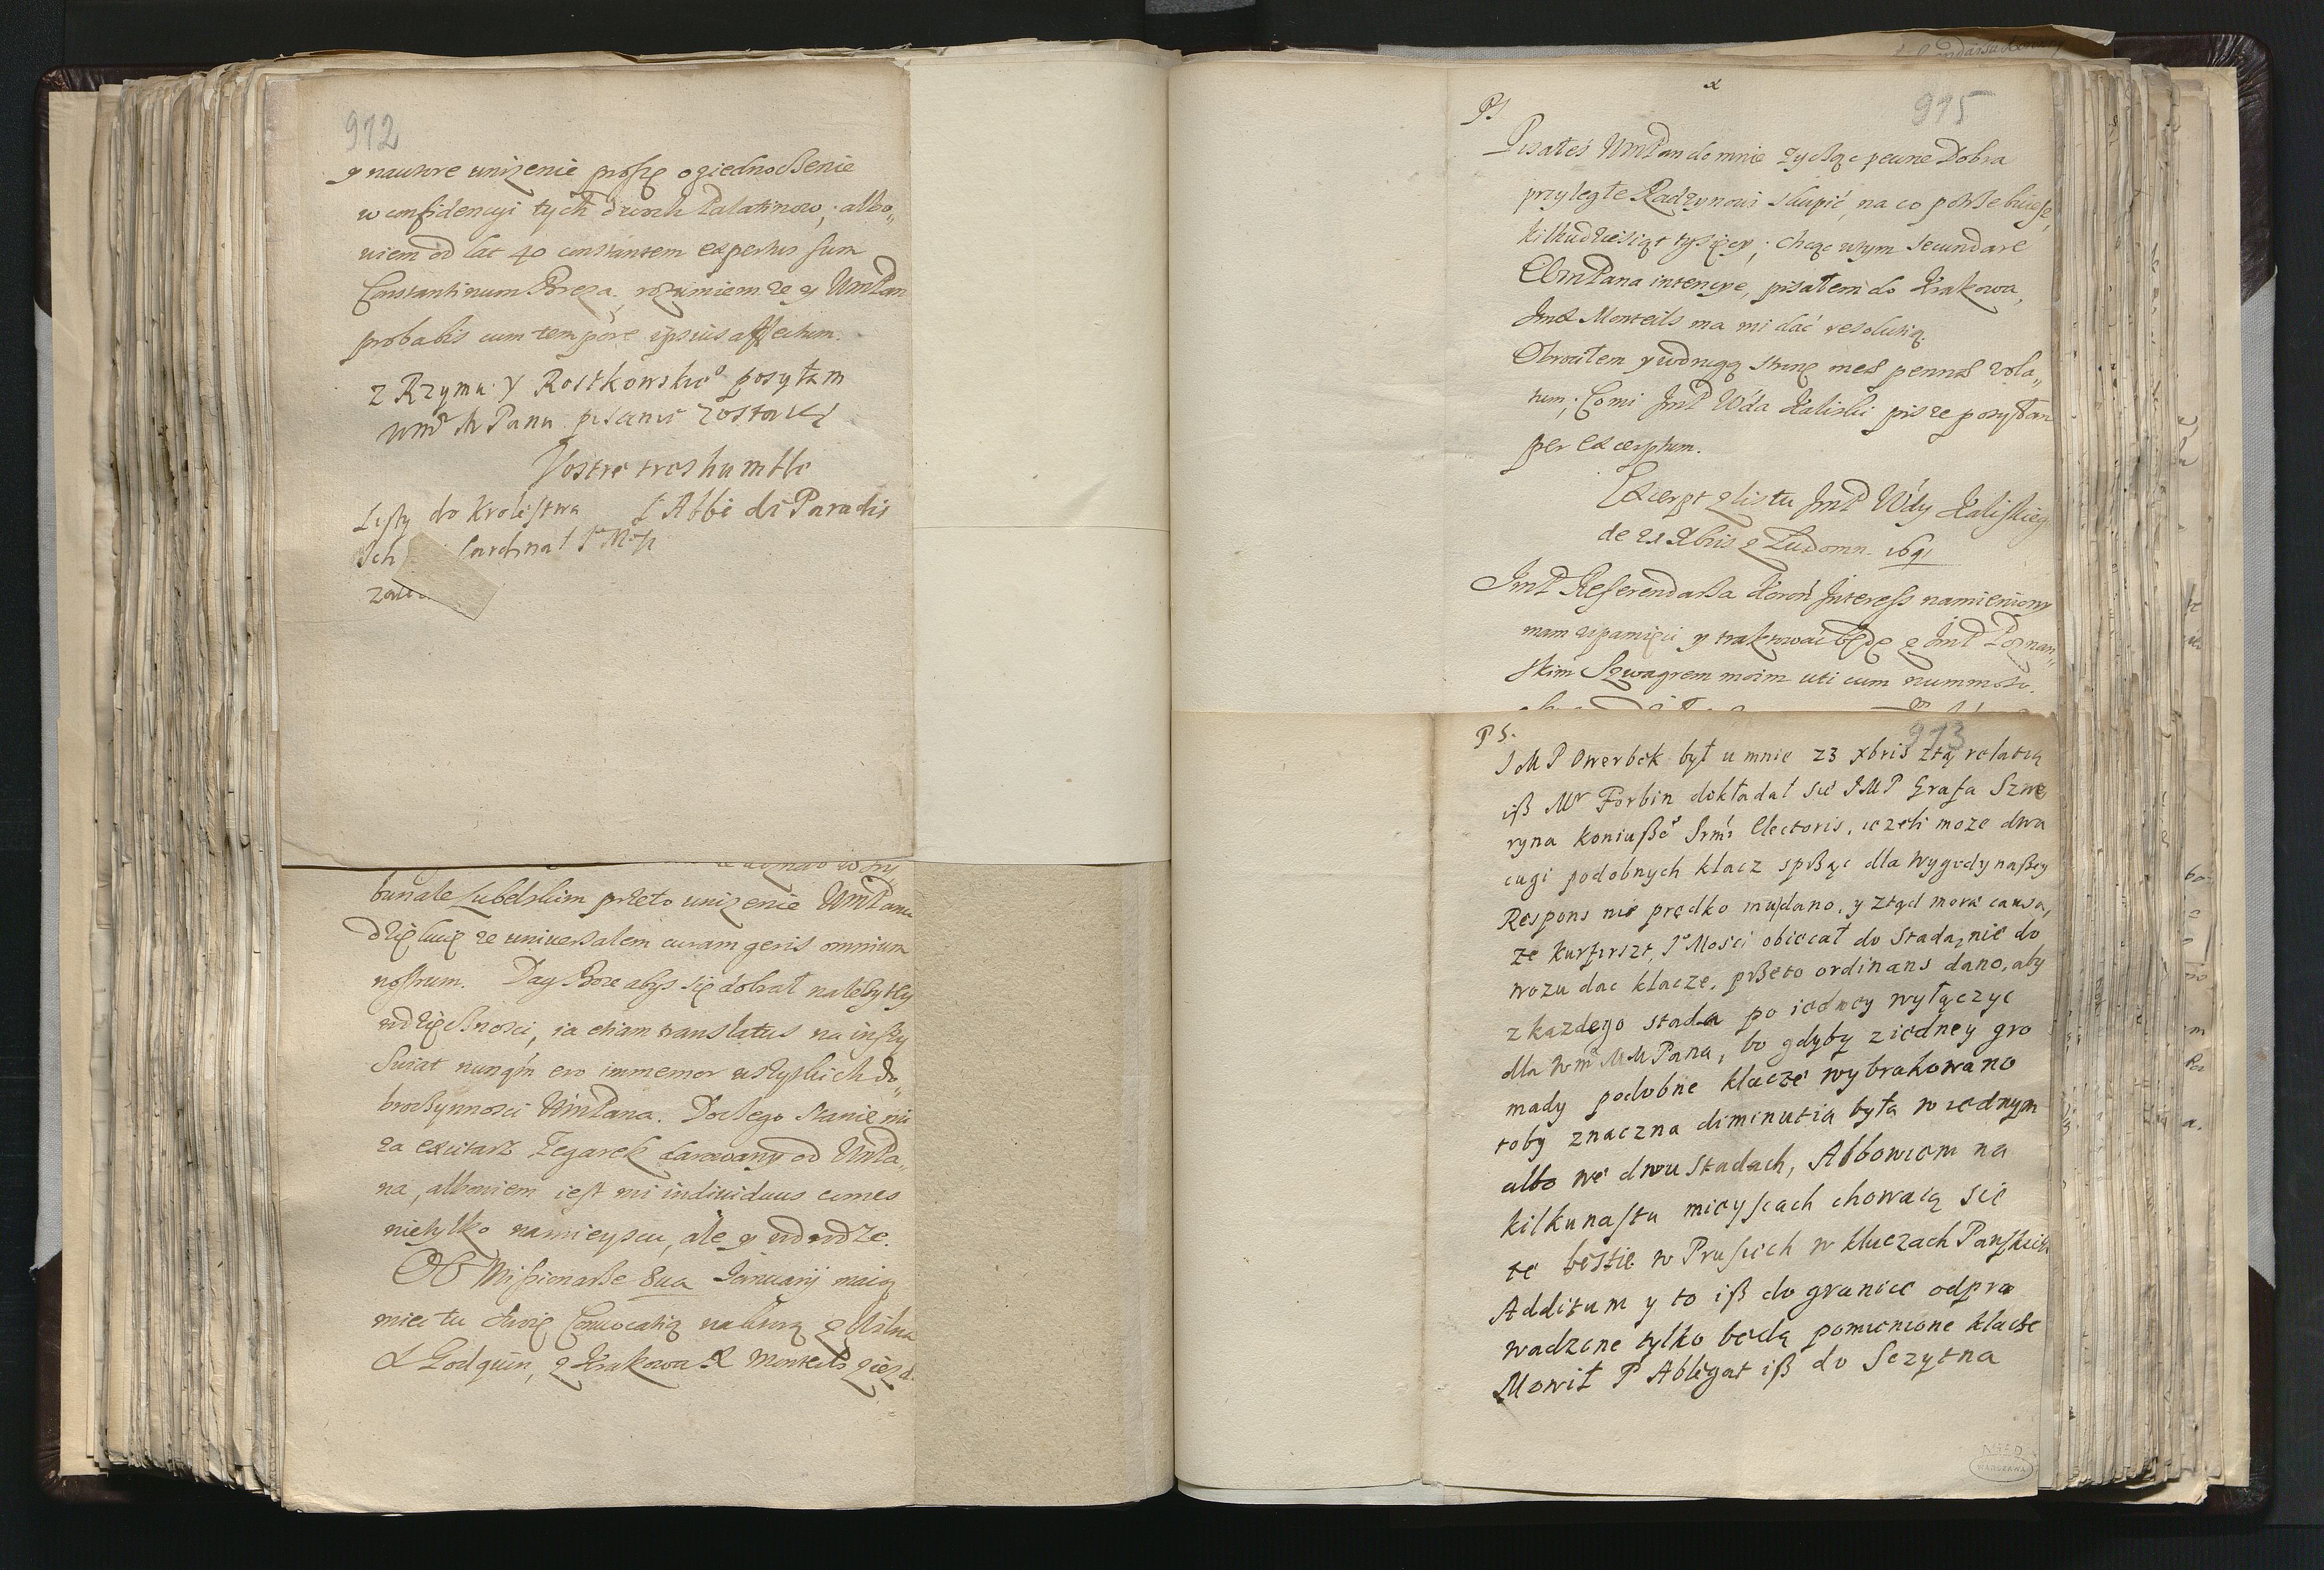 912
y nawore unizenie proszę o ziednoczenie
w confidencyi tych dwoch Palatinow, albo„
wiem od lat 40 constantem expertus sum
Constantinum Breza, rozumiem ze y WmPan
probabis cum tempore ipsius affectum.
z Rzymu y Rostkowskieo posyłam
WmMMPanu pisanie zostaiąc
Vostre tres humble
Listy do Krolestwa L'Abbé di Paradis
Ich Cardinał JeMść
bunale Lubelskim przeto unizenie WmPanu
dziękuię ze universalem curam geris omnium
nostrum. Day Boze abyś się dobrał należytey
wdzięcznosci, ia etiam translatus na inszy
Swiat nunqm ero immemor wszystkich do„
broczynnosci WmPana. Do tego stanie mi
za excitarz Zegarek darowany od WmPa„
na, albowiem iest mi individuus comes
nietylko na mieyscu, ale y w drodze.
XX Missionarze 8ua Januarij maią
miec tu swoię Convocatią na ktorą z Wilna
X Godquin, z Krakowa X Monteils ziezd.
915
PS
Pisałeś WmPan do mnie zycząc pewne Dobra
przyległe Radzynowi skupić, na co potrzebuiesz
kilkudziesiąt tysięcy; chcąc w tym secundare
WmPana intencye, pisałem do Krakowa,
JmX Monteils ma mi dać resolutią.
Obrociłem y w drugą stronę meas pennas vola„
tum; Co mi JmP Wda Kaliski pisze posyłam
per excerptum.
Excerpt z listu JmP Wdy Kaliskiego
de 21 Xbris z Ludomn. 1691
JmP Referendarza Koron Interess namieniony
mam w pamięci y traktować będę z JmP Poznan„
skim Szwagrem moim uti cum nummoso.
913
PS.
JMP Owerbek był u mnie 23 xbris z tą relatią
iß Mr Forbin dokładał się JMP Grafa Szwe
ryna koniußeo Srmi Electoris, ieżeli moze dwa
cugi podobnych klacz spßąc dla wygody naßey
Respons nie prędko mu dano, y ztąd mora causa,
ze Kurfirszt JeMosci obiecał do Stada, nie do
wozu dac klacze, pßeto ordinans dano, aby
z kazdego stada po iedney wyłączyc
dla WmMMPana, bo gdyby z iedney gro
mady podobne klacze wybrakowano
toby znaczna diminutia była w iednym
albo we dwu Stadach, Albowiem na
kilkunastu mieyscach chowaią się
te bestie w Prusiech w kluczach Panskich
Additum y to iß do granice odpro
wadzone tylko będą pomienione klacße
Mowił P Ablegat iß do Sczytna
AGAD
WARSZAWA